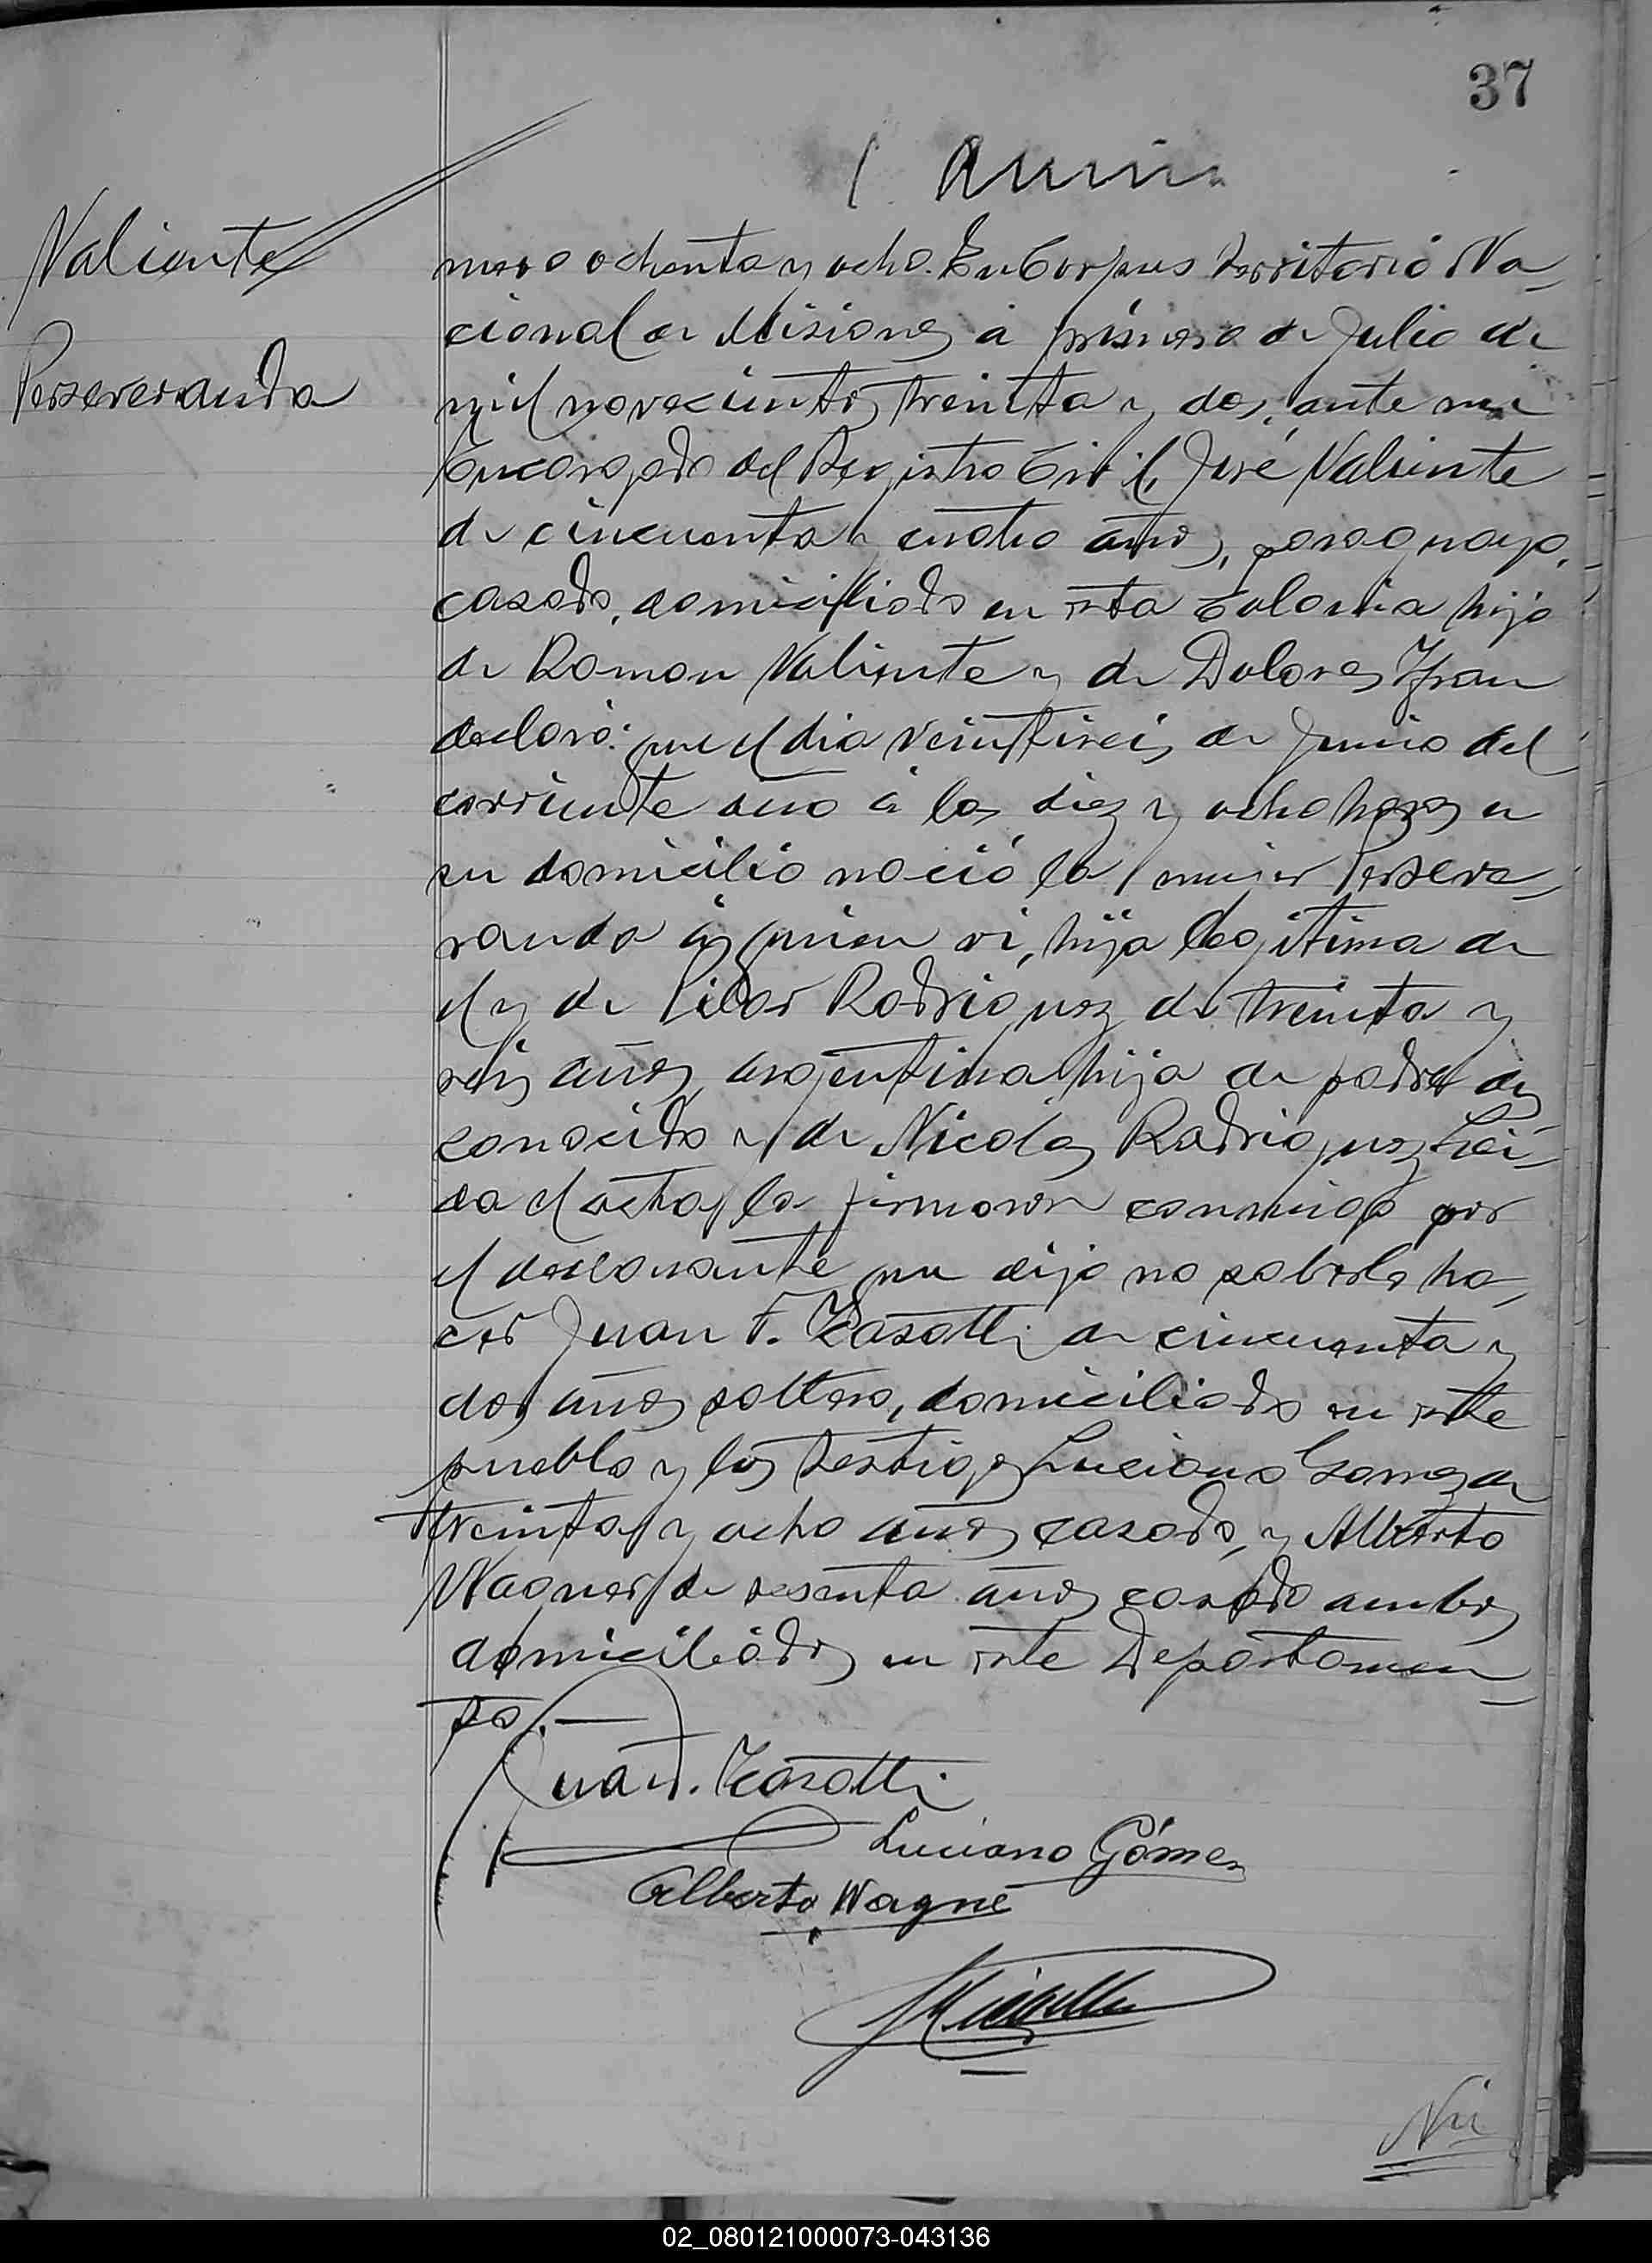 37
Valiente
Perseveranda
mero ochenta y ocho. En Corpus Territorio Na-
cional de Misiones á primero de Julio de
mil novecientos treinta y dos, ante mi
Encargado del Registro Civil, José Valiente
de cincuenta y cuatro años, paraguayo,
casado, domiciliado en esta Colonia hijo
de Ramon Valiente y de Dolores Yfran
declaró: que el dia veintiseis de Junio del
corriente año á las diez y ocho horas en
su domicilio nació la mujer Perseve-
randa á quien vi, hija legitima de
el y de Pilar Rodriguez de treinta y
seis años, argentina hija de padre des
conocido y de Nicolas Rodriguez Lei-
da el acta, la firmaron conmigo por
el declarante que dijo no saberlo ha-
cer Juan F. Zasotti de cincuenta y
dos años soltero, domiciliado en este
pueblo y los testigos Luciano Gomez de
treinta y ocho años casado, y Alberto
Wagner de sesenta años casado ambos
domiciliados en este Departamen-
to.—
Juan F. Zasotti
Luciano Gómez
Alberto Wagne
Nú
02_080121000073-043136